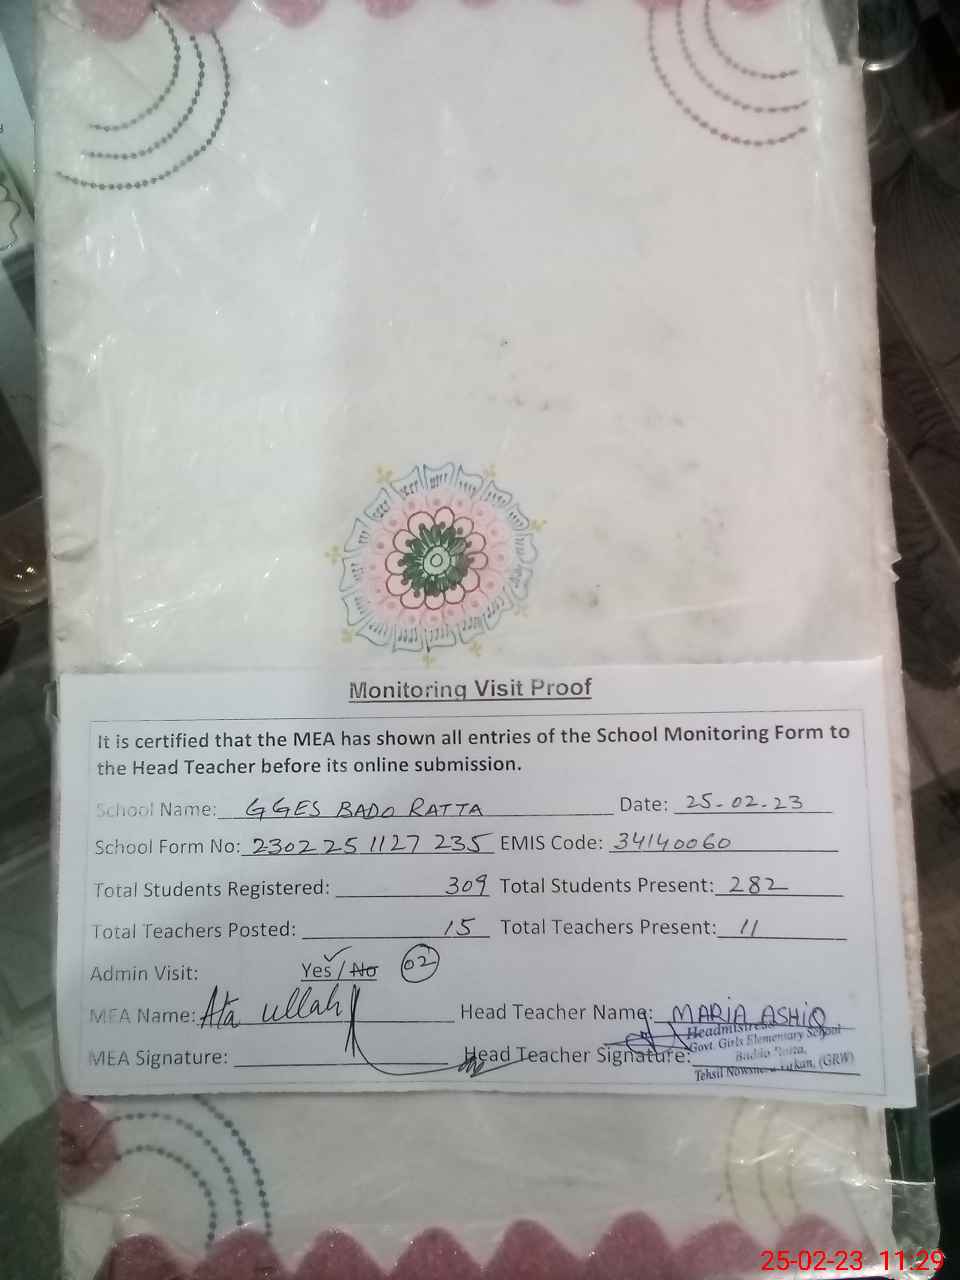 Monitoring Visit Proof
It is certified that the MEA has shown all entries of the School Monitoring Form to
the Head Teacher before its online submission.
School Name: GGES BADO RATTA Date: 25-02-23
School Form No: 2302251127235 EMIS Code: 34140060
Total Students Registered: 309 Total Students Present: 282
Total Teachers Posted: 15 Total Teachers Present: 11
Admin Visit: Yes / No 02
MEA Name: Ata ullah Head Teacher Name: MARIA ASHIQ
MEA Signature: Head Teacher Signature:
Headmistress
Govt. Girls Elementary School
Baddo Ratta,
Tehsil Nowshera Virkan, (GRW)
25-02-23 11:29